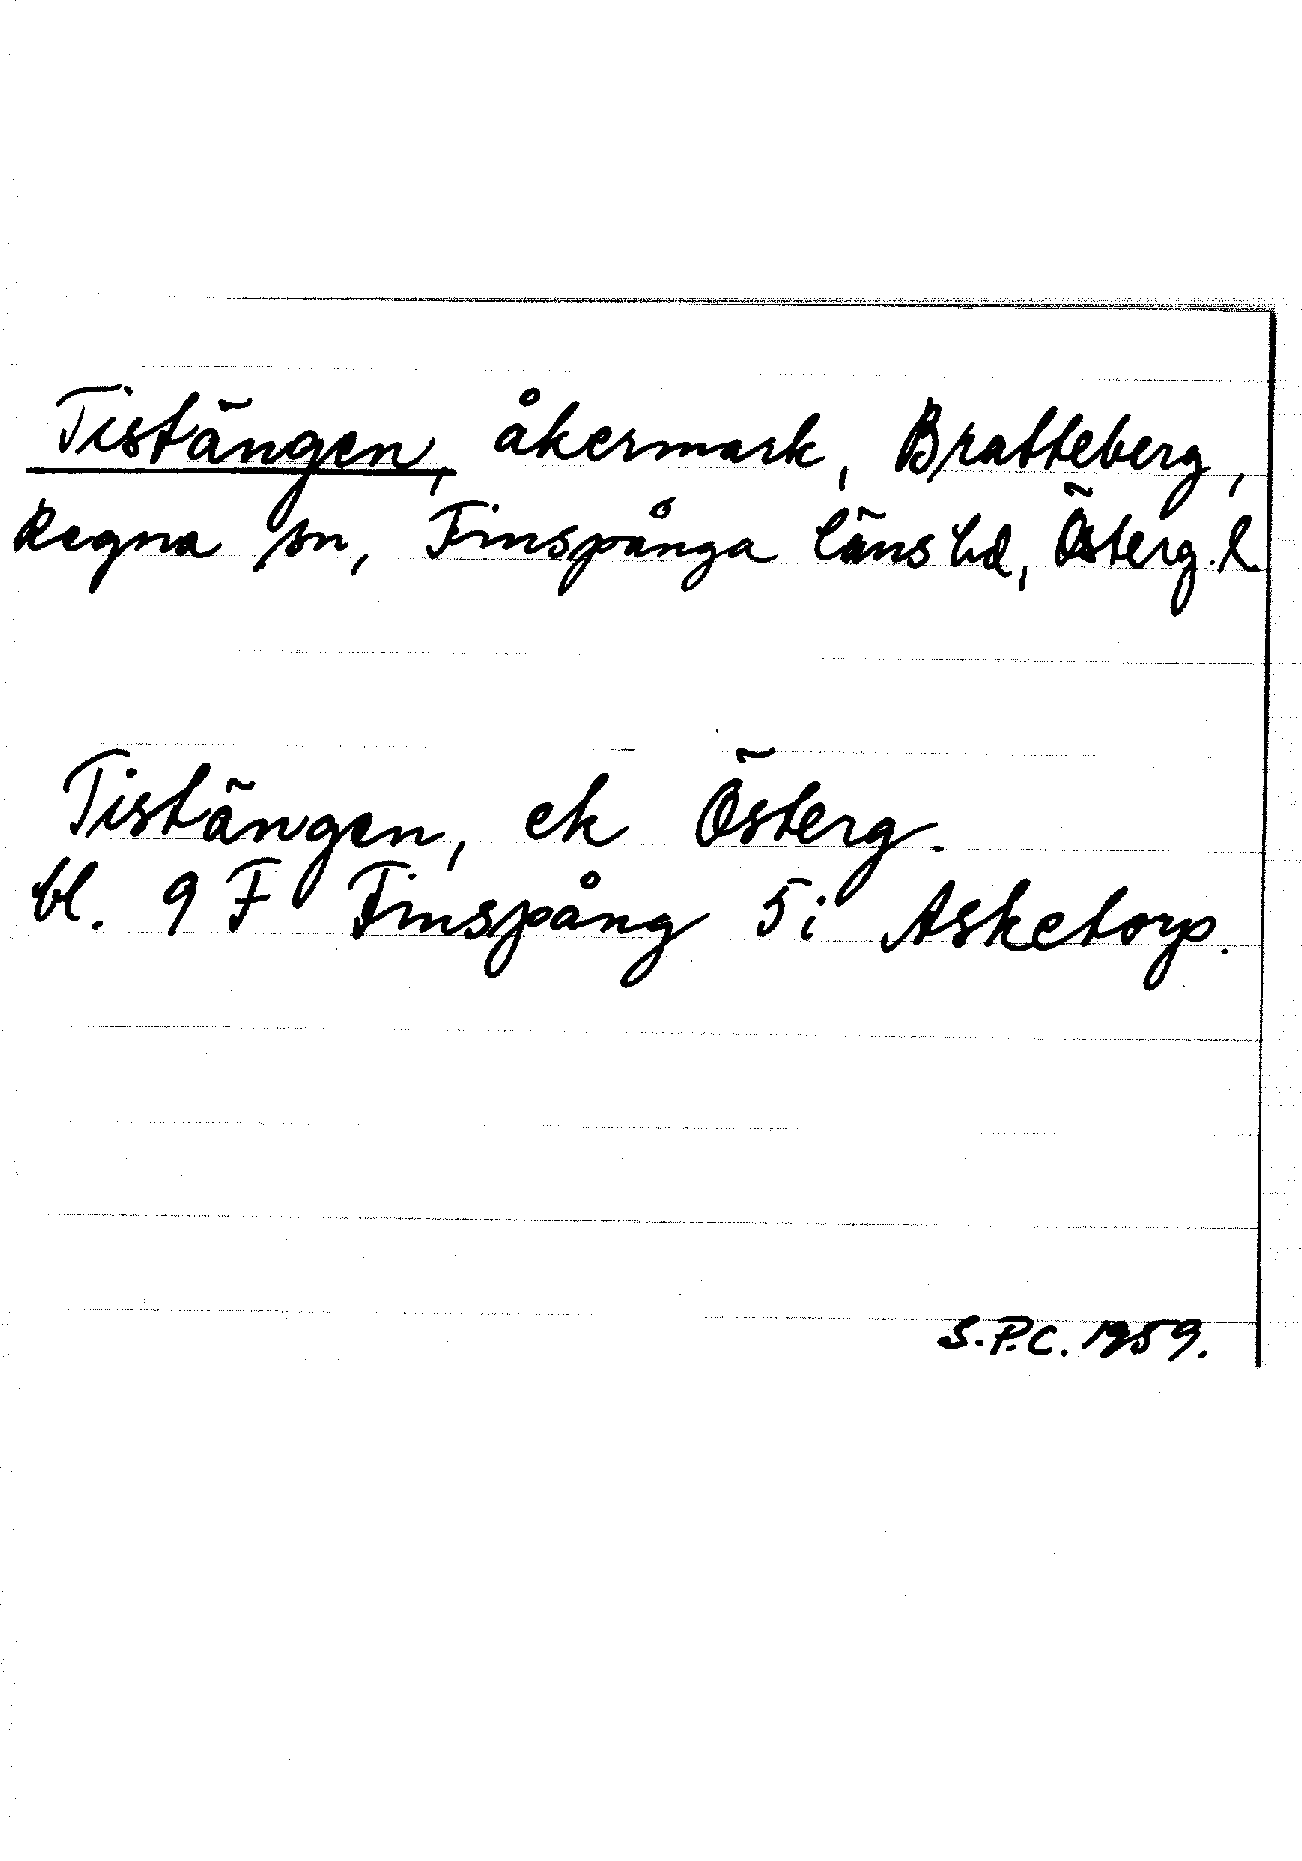 Tistängen, åkermark, Bratteberg,
Regna sn, Finspånga läns hd, Österg. l
Tistängen, ek Österg.
bl. 9 F Finspång 5 i Asketorp.
S.P.C. 1959.